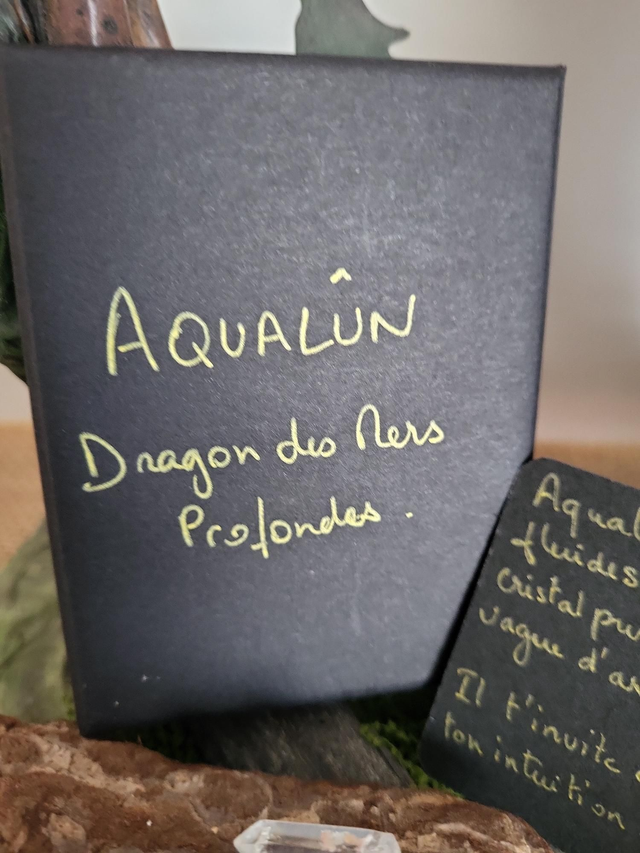 AQUALÛN
Dragon des Mers
Profondes.
Aqual
fluides
cristal pur
vague d'a
Il t'invite
ton intuition